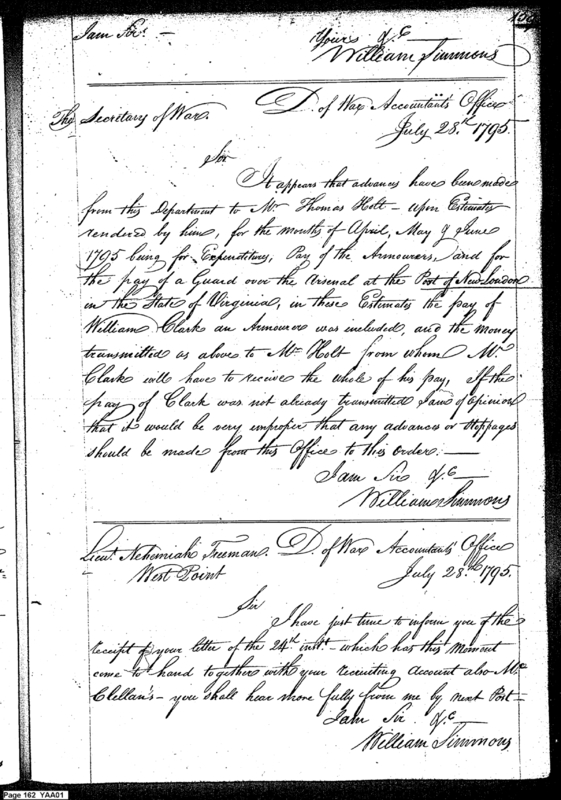 I am Sir. —
Yours &c
William Simmons
The Secretary of War.
D. of War Accountants Office
July 28.th 1795.
Sir
It appears that advances have been made
from this Department to Mr. Thomas Holt — upon Estimates
rendered by him, for the months of April, May & June
1795 being for Expenditures, Pay of the Armourers, and for
the pay of a Guard over the Arsenal at the Post of New London
in the State of Virginia, in these Estimates the pay of
William Clark an Armourer was included, and the money
transmitted as above to Mr Holt from whom Mr
Clark will have to receive the whole of his pay, If the
pay of Clark was not already transmitted I am of Opinion
that it would be very improper that any advances or stoppages
should be made from this Office to this order. —
I am Sir &c —
William Simmons
Lieut. Nehemiah Freeman.
D. of War Accountants' Office
West Point
July 28.th 1795.
Sir
I have just time to inform you of the
receipt of your letter of the 24th inst. — which has this moment
come to hand together with your recruiting account also Mc
Clellan's — you shall hear more fully from me by next Post —
I am Sir. &c
William Simmons
Page 162 YAA01